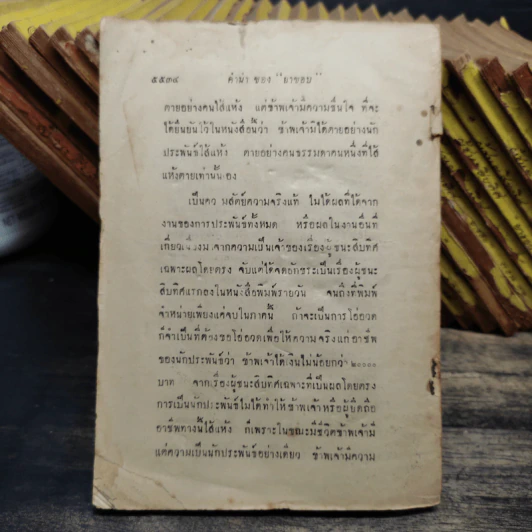 ๕๕๓๔ คำนำ ของ "ยาขอบ"
ตายอย่างคนไส้แห้ง แต่ข้าพเจ้ามีความชื่นใจ ที่จะ
ได้ยืนยันไว้ในหนังสือนี้ว่า ข้าพเจ้ามิได้ตายอย่างนัก
ประพันธ์ไส้แห้ง ตายอย่างคนธรรมดาคนหนึ่งที่ไส้
แห้งตายเท่านั้นเอง
เป็นความสัตย์ความจริงแท้ ไม่ได้ผลที่ได้จาก
งานของการประพันธ์ทั้งหมด หรือผลในงานอื่นที่
เกี่ยวเนื่องมาจากความเป็นเจ้าของเรื่องผู้ชนะสิบทิศ
เฉพาะผลโดยตรง จับแต่ได้จัดอักขระเป็นเรื่องผู้ชนะ
สิบทิศแรกลงในหนังสือพิมพ์รายวัน จนถึงที่พิมพ์
จำหน่ายเพียงแค่จบในภาคนี้ ถ้าจะเป็นการโอ่อวด
ก็จำเป็นที่ต้องขอโอ่อวดเพื่อให้ความจริงแก่อาชีพ
ของนักประพันธ์ว่า ข้าพเจ้าได้เงินไม่น้อยกว่า ๒๐๐๐๐
บาท จากเรื่องผู้ชนะสิบทิศเฉพาะที่เป็นผลโดยตรง
การเป็นนักประพันธ์ไม่ได้ทำให้ข้าพเจ้าหรือผู้ยึดถือ
อาชีพทางนี้ไส้แห้ง ก็เพราะในขณะมีชีวิตข้าพเจ้ามี
แต่ความเป็นนักประพันธ์อย่างเดียว ข้าพเจ้ามีความ